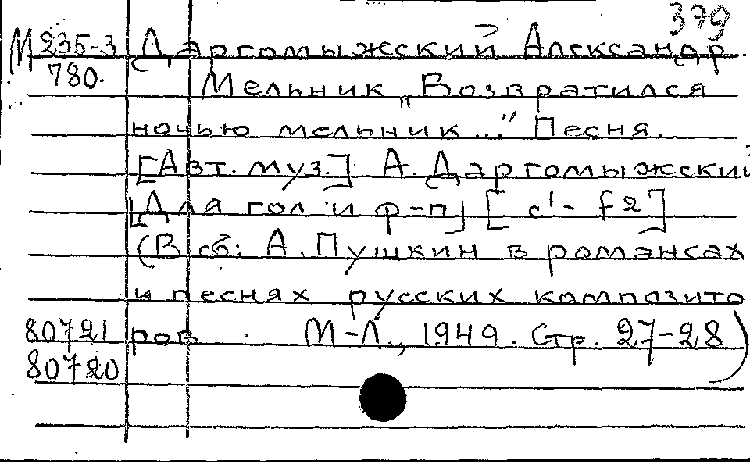 379
М235-3 Даргомыжский Александр
780. Мельник „Возвратился
ночью мельник..." Песня.
[Авт. муз.] А. Даргомыжский
[Для гол и ф-п] [c'- f2]
(В сб: А. Пушкин в романсах
и песнях русских композито
80721 ров. М-Л., 1949. Стр. 27-28)
80720